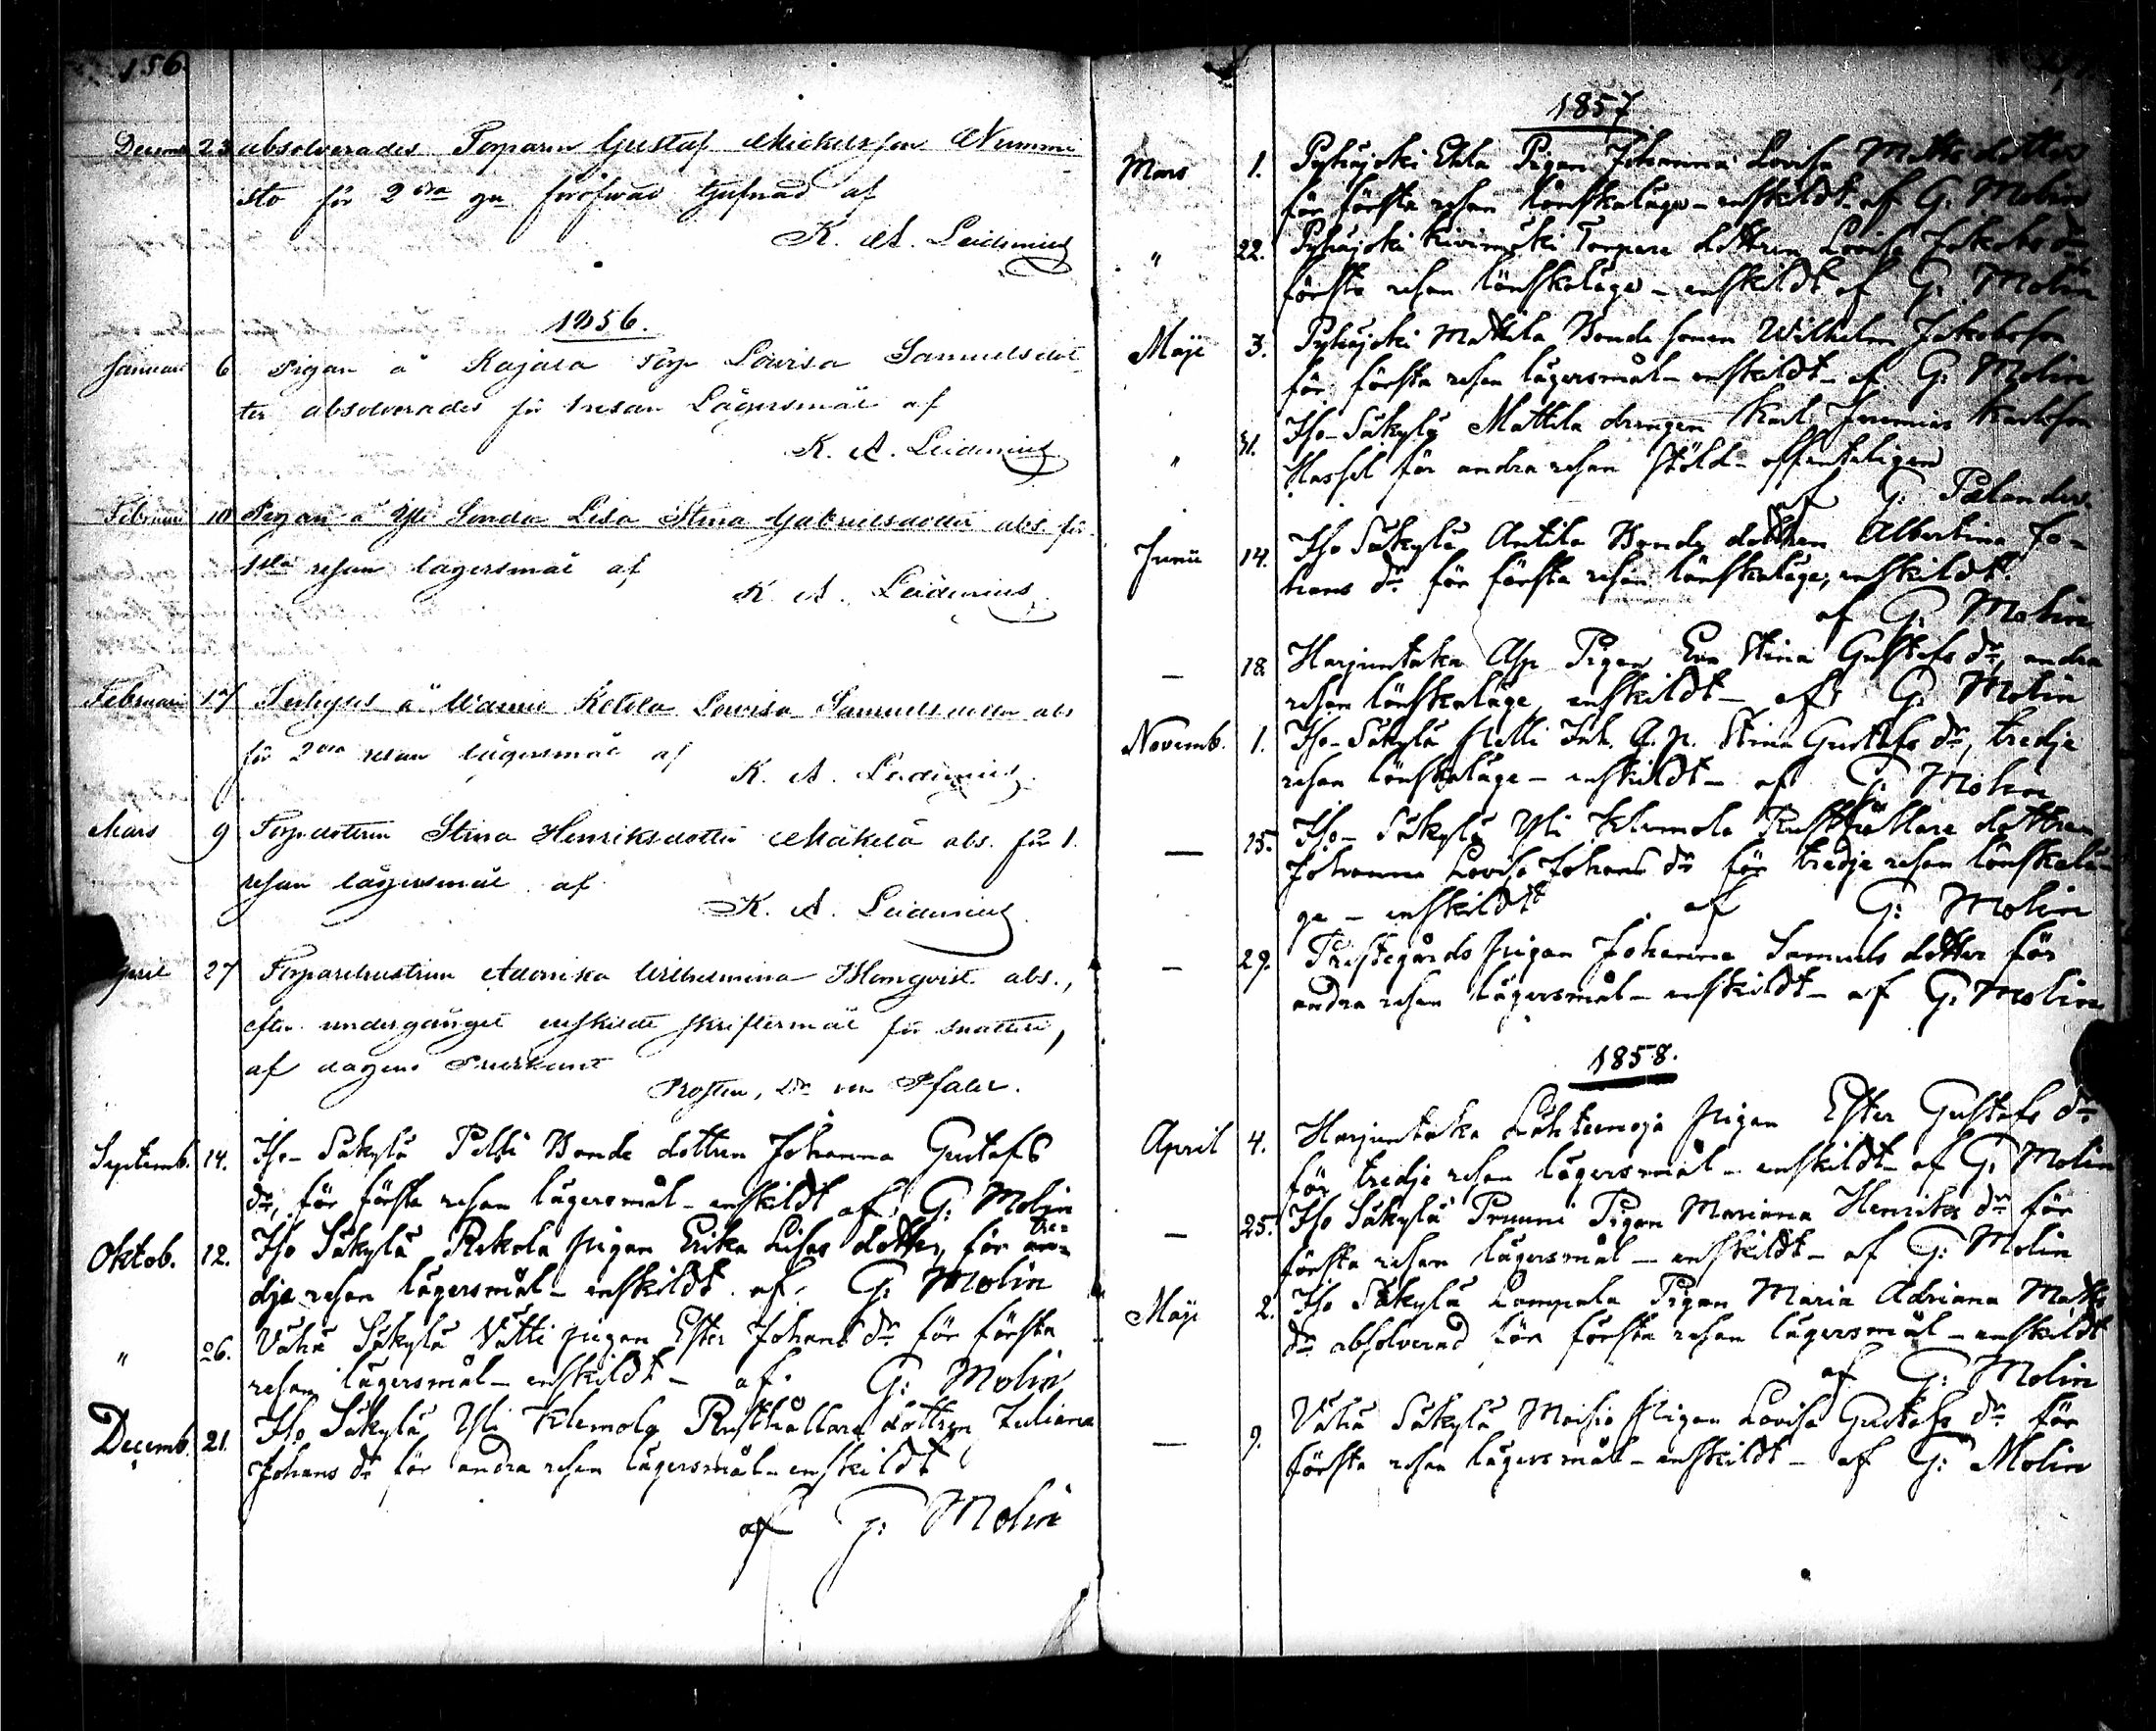 156.
Decemb. 23 absolverades Torparen Gustaf Mickelsson Nummi-
sto för 2dra gn föröfwad tjufnad af
K. A. Leidenius
1856.
Januari 6 Pigan å Kajala Torp Lovisa Samuelsdot-
ter absolverades för 1 resan Lägersmål af
K. A. Leidenius
Februari 10 Pigan å Yli Lisa Stina Gabrielsdotter abs. för
1sta resan lägersmål af
K. A. Leidenius
Februari 17 Ketola Lovisa Samuelsdotter abs
för 2dra resan lägersmål af
K. A. Leidenius
Mars 9 Torpdottren Stina Henriksdotter Mäkelä abs. för 1.
resan lägersmål af
K. A. Leidenius
April 27 Torparehustrun Wilhelmina Blomqvist abs.,
efter undergånget enskildt skriftermål för snatteri,
af dagens
Prosten, Dr von Pfaler.
Septemb. 14. Iso-Säkylä Pelli Bonde dottren Johanna Gustafs
dr, för första resan lägersmål – enskildt af G: Molin
Oktob. 12. Iso Säkylä Pigan Erika Lisas dotter, för tre-
dje resan lägersmål – enskildt af G: Molin
" 26. Vähä Säkylä Pigan Ester Johans dr för första
resan lägersmål – enskildt – af G: Molin
Decemb. 21. Iso Säkylä Yli Klemola Rusthållare dottren Juliana
Johans dr för andra resan lägersmål – enskildt
af G: Molin
1857
Mars 1. Pyhäjoki Pigan Johanna Lovisa Matts dotter
för första resan lönskaläge – enskildt af G. Molin
" 22. Pyhäjoki Kivimäki Torpare dottren Lovisa Jakobs dr
första resan lönskaläge – enskildt af G: Molin
Maji 3. Pyhäjoki Mattila Bonde sonen Wilhelm Jakobsson
för första resan lägersmål – enskildt – af G: Molin
" 31. Iso-Säkylä Mattila drengen Karl Jeremias Karlsson
Hassel för andra resan stöld – offenteligen
af G: Palander.
Junii 14. Iso Säkylä Antila Bonde dottren Albertina Jo-
hans dr för första resan lönskaläge, enskildt.
af G: Molin
— 18. Harjuntaka Pigan Eva Stina Gustafs dr, andra
resan lönskaläge, enskildt – af G: Molin
Novemb. 1. Iso-Säkylä Pelli Inh. Stina Gustafs dr, tredje
resan lönskaläge – enskildt – af G: Molin
— 15. Iso-Säkylä Yli Klemola Rusthållare dottren
Johanna Lovisa Johans dr för tredje resan lönskalä-
ge – enskildt af G: Molin
— 29. Prestegårds pigan Johanna Samuels dotter för
andra resan lägersmål – enskildt – af G. Molin
1858.
April 4. Harjuntaka Lähteenoja pigan Ester Gustafs dr
för tredje resan lägersmål – enskildt – af G: Molin
— 25. Iso Säkylä Prunni Pigan Mariana Henriks dr för
första resan lägersmål – enskildt – af G: Molin
Maji 2. Iso Säkylä Lampala Pigan Maria Adriana Matts
dr absolverad för första resan lägersmål – enskildt
af G: Molin
— 9. Vähä Säkylä Moisio Pigan Lovisa Gustafs dr för
första resan lägersmål – enskildt – af G: Molin